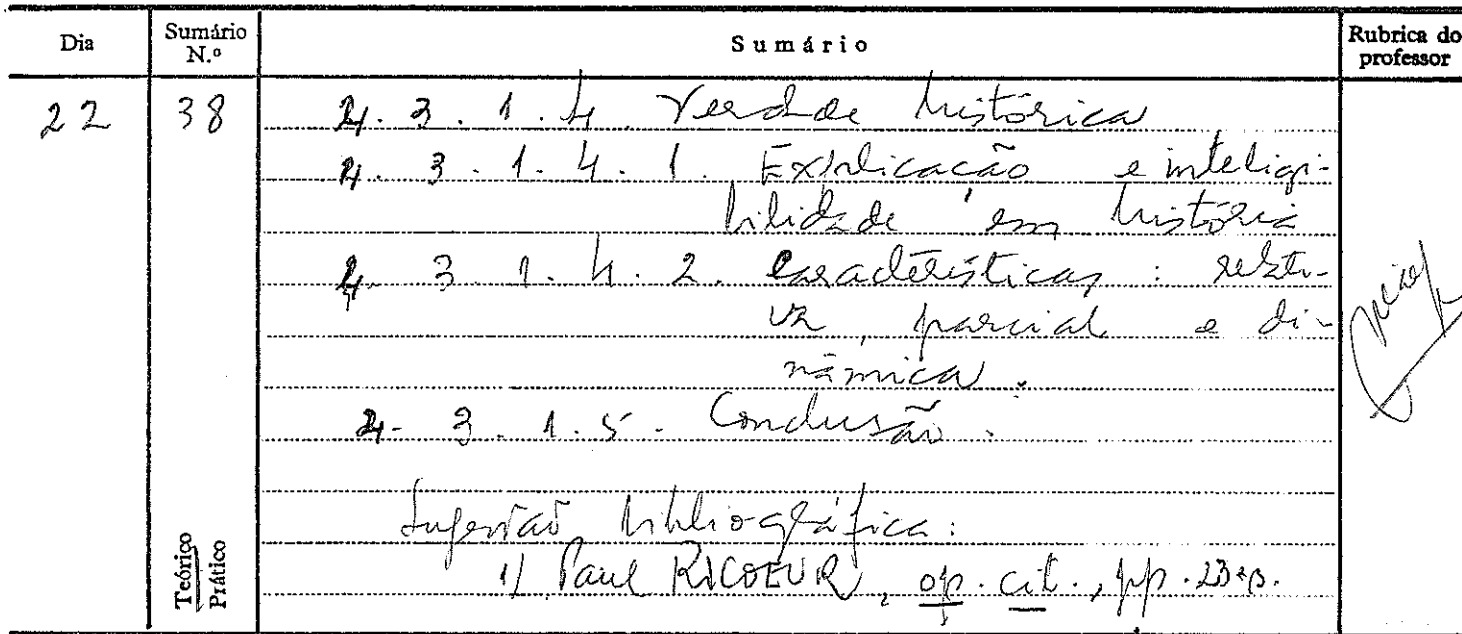 Dia Sumário N.º Sumário Rubrica do professor
22 38 4. 3. 1. 4. Verdade histórica
4. 3. 1. 4. 1. Explicação e inteligi-
bilidade em história
4. 3. 1. 4. 2. Características: relati-
va, parcial e di-
nâmica.
4. 3. 1. 5. Conclusão.
Sugestão bibliográfica:
1) Paul RICOEUR, op. cit., pp. 23
Teórico
Prático